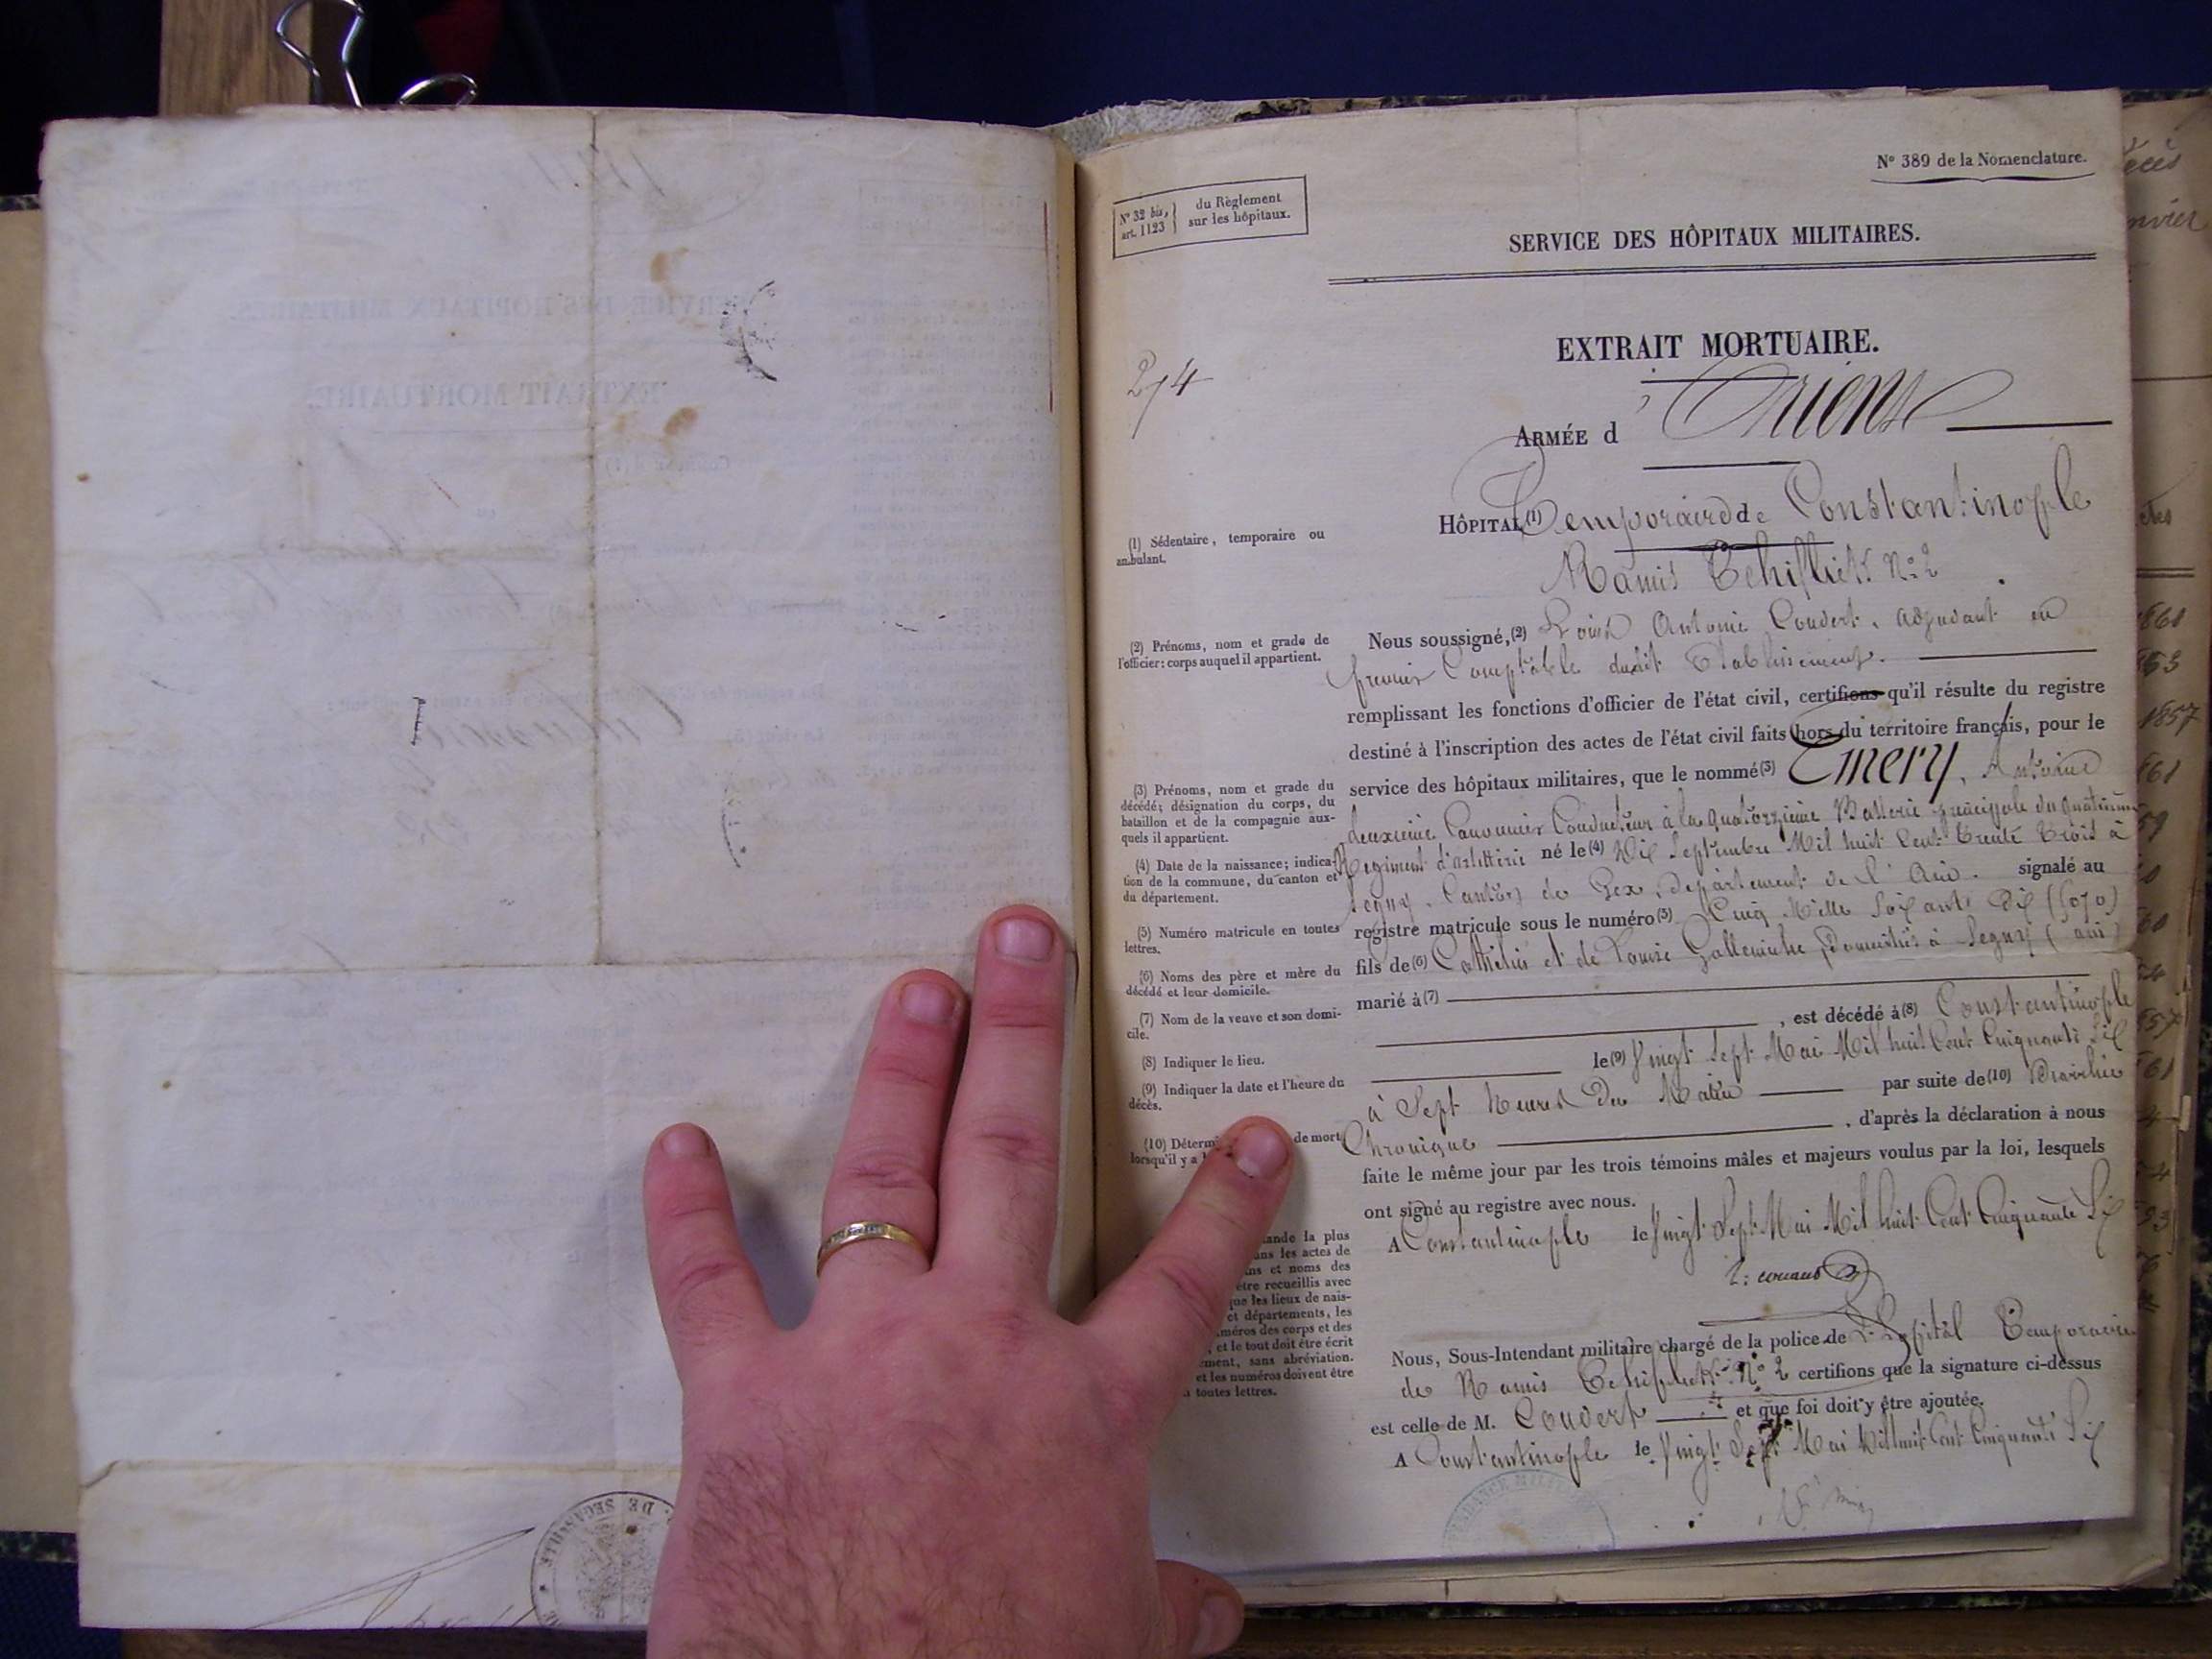 N° 389 de la Nomenclature.
N° 32 bis, art. 1123 } du Règlement sur les hôpitaux.
SERVICE DES HÔPITAUX MILITAIRES.
EXTRAIT MORTUAIRE.
274
ARMÉE d'Orient
HÔPITAL (1) Temporaire de Constantinople
Ramis Tchifflick N° 2
Nous soussigné, (2) Louis Antoine Couvert, adjudant en
premier Comptable dudit Etablissement.
remplissant les fonctions d'officier de l'état civil, certifions qu'il résulte du registre
destiné à l'inscription des actes de l'état civil faits hors du territoire français, pour le
service des hôpitaux militaires, que le nommé (3) Emery, Antoine
deuxième Canonnier Conducteur à la Quatorzième Batterie principale du Quatrième
Régiment d'artillerie né le (4) Dix Septembre Mil huit Cent Trente Trois à
Segny, Canton de Gex, département de l'Ain. signalé au
registre matricule sous le numéro (5) Cinq Mille Soixante Dix (5070)
fils de (6) et de Louise Domiciliés à Segny (ain)
marié à (7)
, est décédé à (8) Constantinople
le (9) Vingt Sept Mai Mil huit Cent Cinquante Six
à Sept heures du Matin par suite de (10) Diarrhée
Chronique , d'après la déclaration à nous
faite le même jour par les trois témoins mâles et majeurs voulus par la loi, lesquels
ont signé au registre avec nous.
A Constantinople le Vingt Sept Mai Mil huit Cent Cinquante Six
Nous, Sous-Intendant militaire chargé de la police de L'hopital Temporaire
de Ramis Tchifflick N° 2 certifions que la signature ci-dessus
est celle de M. Couvert et que foi doit y être ajoutée.
A Constantinople le Vingt Sept Mai Mil huit Cent Cinquante Six
(1) Sédentaire, temporaire ou
ambulant.
(2) Prénoms, nom et grade de
l'officier; corps auquel il appartient.
(3) Prénoms, nom et grade du
décédé; désignation du corps, du
bataillon et de la compagnie aux-
quels il appartient.
(4) Date de la naissance; indica-
tion de la commune, du canton et
du département.
(5) Numéro matricule en toutes
lettres.
(6) Noms des père et mère du
décédé et leur domicile.
(7) Nom de la veuve et son domi-
cile.
(8) Indiquer le lieu.
(9) Indiquer la date et l'heure du
décès.
(10) Détermi de mort
lorsqu'il y a
ande la plus
ans les actes de
ns et noms des
être recueillis avec
que les lieux de nais-
et départements, les
méros des corps et des
, et le tout doit être écrit
ment, sans abréviation.
et les numéros doivent être
toutes lettres.
1857